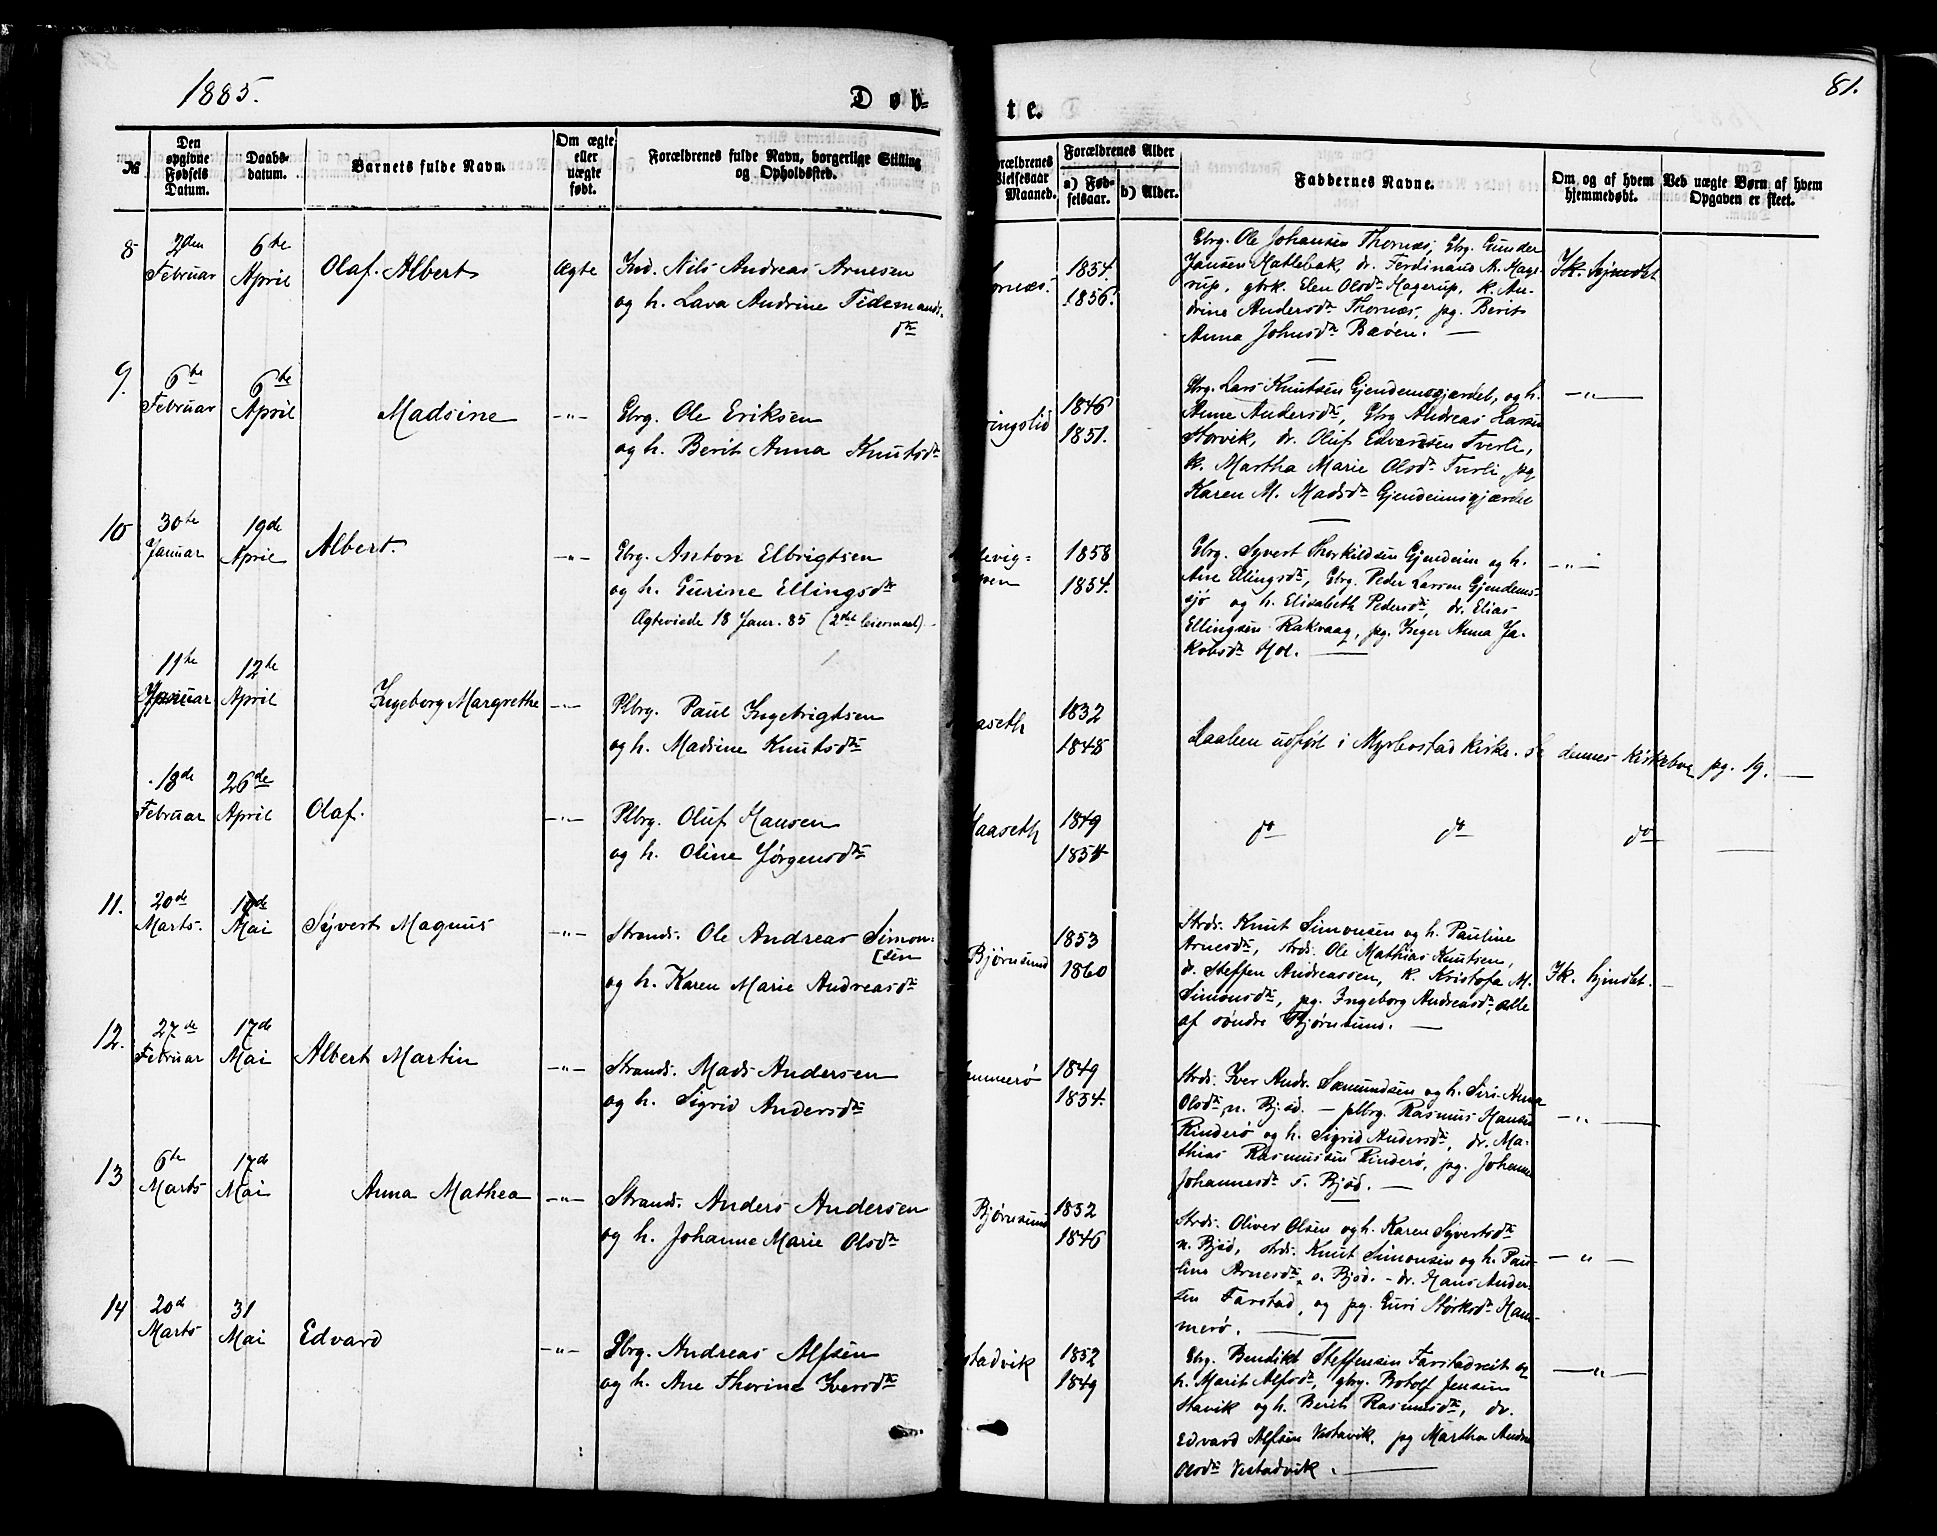 1885.
Døb=
te.
81.
№
Den opgivne Fødsels Datum.
Daabs-datum.
Barnets fulde Navn.
Om ægte eller uægte født.
Forældrenes fulde Navn, borgerlige Stilling og Opholdssted.
Forældrenes Vielsesaar Maaned.
Forældrenes Alder
a) Fødselsaar.
b) Alder.
Faddernes Navne.
Om og af hvem hjemmedøbt.
Ved uægte Børn af hvem Opgaven er skeet.
8
2den Februar
6te April
Olaf Albert
Ægte
Ind. Nils Andreas Arnesen
og h. Lava Andrine Tidemands-
dtr
ornæs.
1854.
1856.
Gbrg. Ole Johansen Thornæs, Gbrg. Gunder
Jansen Matlebak, dr. Ferdinand M. Hage-
rup, gbrk. Elen Olsdtr Hagerup, k. An-
drine Andersdtr Thornæs, pg. Berit
Anna Johnsdtr Bæven. —
Ik. hjmdøbt
9.
6te Februar
6te April
Madsine
—"—
Gbrg. Ole Eriksen
og h. Berit Anna Knutsdtr
ringslid
1846
1851.
Gbrg. Lars Knutsen Gjendemsgjærdet, og h.
Anne Andersdtr, Gbrg Andreas Larsen
Storvik, dr. Oluf Edvardsen Tverli,
k. Martha Marie Olsdtr Tverli, pg
Karen M. Madsdtr Gjendemsgjærdet
—"—
10
30te Januar
19de April
Albert.
—"—
Gbrg. Anton Elbrigtsen
og h. Gurine Ellingsdtr
Ægteviede 18 Janr. 85 (2det leiermaal)
levig-
1858
1854.
Gbrg. Syvert Thorkildsen Gjendem og h.
Ane Ellingsdtr, Gbrg. Peder Larsen Gjendems-
sjø og h. Elisabeth Pedersdtr, dr. Elias
Ellingsen Rakvaag, pg. Inger Anna Ja-
kobsdtr Hol. —
—"—
11te Januar
12te April
Ingeborg Margrethe
—"—
Plbrg. Paul Ingebrigtsen
og h. Madsine Knutsdtr
aaseth
1832
1848
Daaben udført i Myrbostad Kirke. Se dennes Kirkebog pg. 19. —
18de Februar
26de April
Olaf.
—"—
Plbrg. Oluf Hansen
og h. Oline Jørgensdtr
Haaseth
1849
1854
do do do —
11.
20de Marts.
10de Mai
Syvert Magnus
—"—
Strands. Ole Andreas Simon-
[sen
og h. Karen Marie Andreasdtr
Bjørnsund
1853
1860
Strds. Knut Simonsen og h. Pauline
Arnesdtr, strds. Ole Mathias Knutsen,
dr. Steffen Andreassen, k. Kristofa M.
Simonsdtr, pg. Ingeborg Andreasdtr, alle
af søndre Bjørnsund. —
Ik. hjmdøbt.
12.
27de Februar
17de Mai
Albert Martin
—"—
Strands. Mads Andersen
og h. Sigrid Andersdtr
ammerø
1849
1854.
Strds. Iver Andr. Samundsen og h. Siri Anna
Olsdtr n. Bjsd. — plbrg. Rasmus Hansen
Rinderø og h. Sigrid Andersdtr, dr. Ma-
thias Rasmussen Rinderø, pg. Johanne
Johannesdtr s. Bjsd. —
—"—
13
6te Marts
17de Mai
Anna Mathea
—"—
Strands. Anders Andersen
og h. Johanne Marie Olsdtr
Bjørnsund
1852
1846
Strds. Oliver Olsen og h. Karen Syvertsdtr
n. Bjsd, strds. Knut Simonsen og h. Pau-
line Arnesdtr s. Bjsd. – dr. Hans Ander-
sen Farstad, og pg. Guri Størksdtr Ham-
merø. —
—"—
14
20d Marts
31 Mai
Edvard
—"—
Gbrg. Andreas Alfsen
og h. Ane Thorine Iversdtr
stadvik
1852
1849
Gbrg. Bendikt Steffensen Farstadveit og
h. Marit Alfsdtr, gbrg. Botolf Jensen
Stavik og h. Berit Rasmusdtr, dr.
Edvard Alfsen Vestavik, pg Martha Andrea
Olsdtr Vestadvik. —
—"—